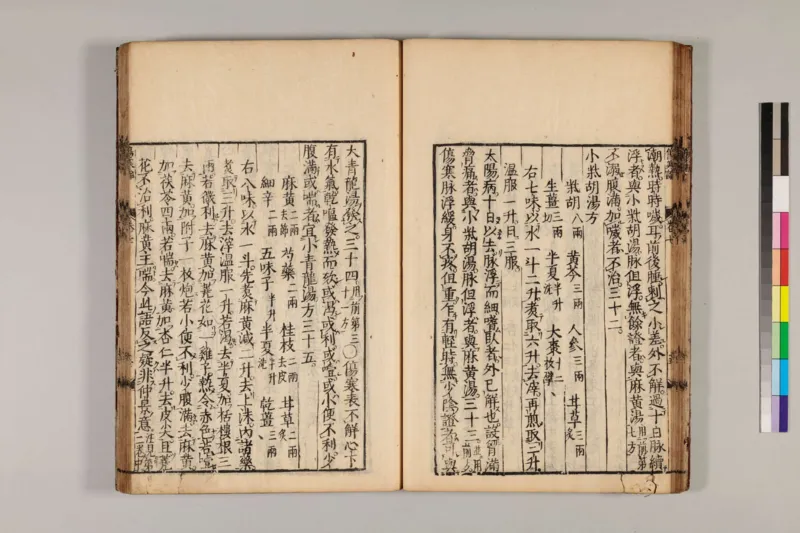 潮熱時時噦耳前後腫刺之小差外不解過十日脉續
浮者與小柴胡湯脉但浮無餘證者與麻黄湯用前第七方
不溺腹滿加噦者不治三十二
小柴胡湯方
柴胡八兩 黄芩三兩 人參三兩 甘草三兩炙
生薑三兩切 半夏半升洗 大棗十二枚擘
右七味以水一斗二升煑取六升去滓再煎取三升
温服一升日三服
太陽病十日以去脉浮而細嗜臥者外已解也設胷滿
脅痛者與小柴胡湯脉但浮者與麻黄湯三十三並用前方
傷寒脉浮緩身不疼但重乍有輕時無少陰證者可與
大青龍湯發之三十四用前第三十方○傷寒表不解心下
有水氣乾嘔發熱而欬或渴或利或噎或小便不利少
腹滿或喘者宜小青龍湯方三十五
麻黄二兩去節 芍藥二兩 桂枝二兩去皮 甘草二兩炙
細辛二兩 五味子半升 半夏半升洗 乾薑三兩
右八味以水一斗先煑麻黄減二升去上沫内諸藥
煑取三升去滓温服一升若渴去半夏加栝樓根三
兩若微利去麻黄加蕘花如一雞子熬令赤色若噎
去麻黄加附子一枚炮若小便不利少腹滿去麻黄
加茯苓四兩若喘去麻黄加杏仁半升去皮尖且蕘
花不治利麻黄主喘今此語反之疑非仲景意